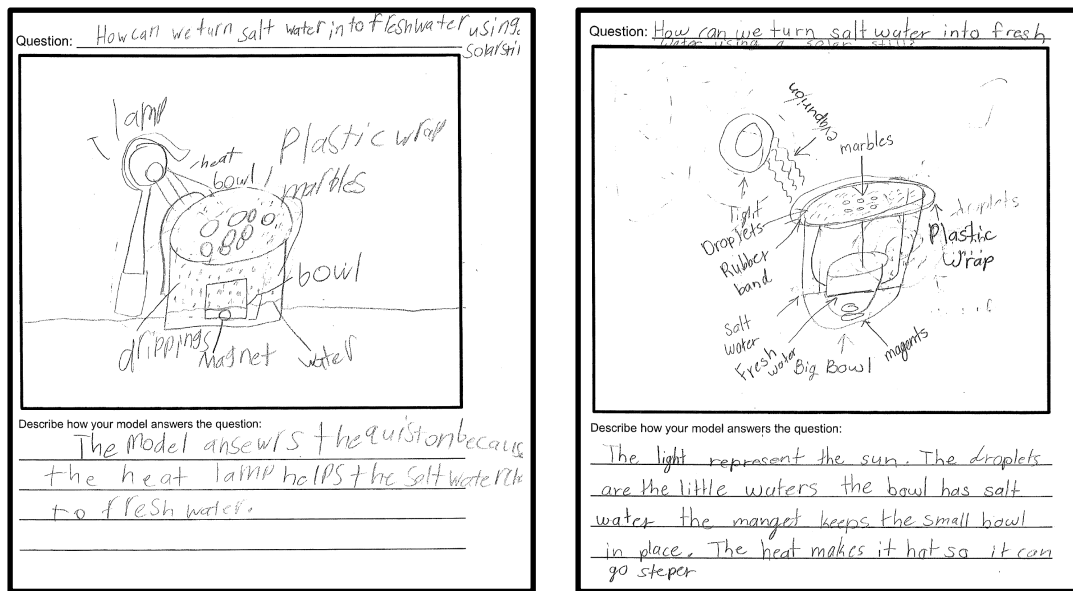 Question: How can we turn salt water into freshwater using
solarstil
lamp
heat
bowl
Plastic wrap
marbles
bowl
drippings
Magnet
water
Describe how your model answers the question:
The Model ansewrs the quistonbecause
the heat lamp helps the salt water
to fresh water.
Question: How can we turn salt water into fresh
water using a solar still?
evaprtion
marbles
light
Droplets
Rubber
band
droplets
Plastic
Wrap
Salt
water
Fresh
water
Big Bowl
magents
Describe how your model answers the question:
The light represent the sun. The droplets
are the little waters the bowl has salt
water the manget keeps the small bowl
in place. The heat makes it hot so it can
go steper